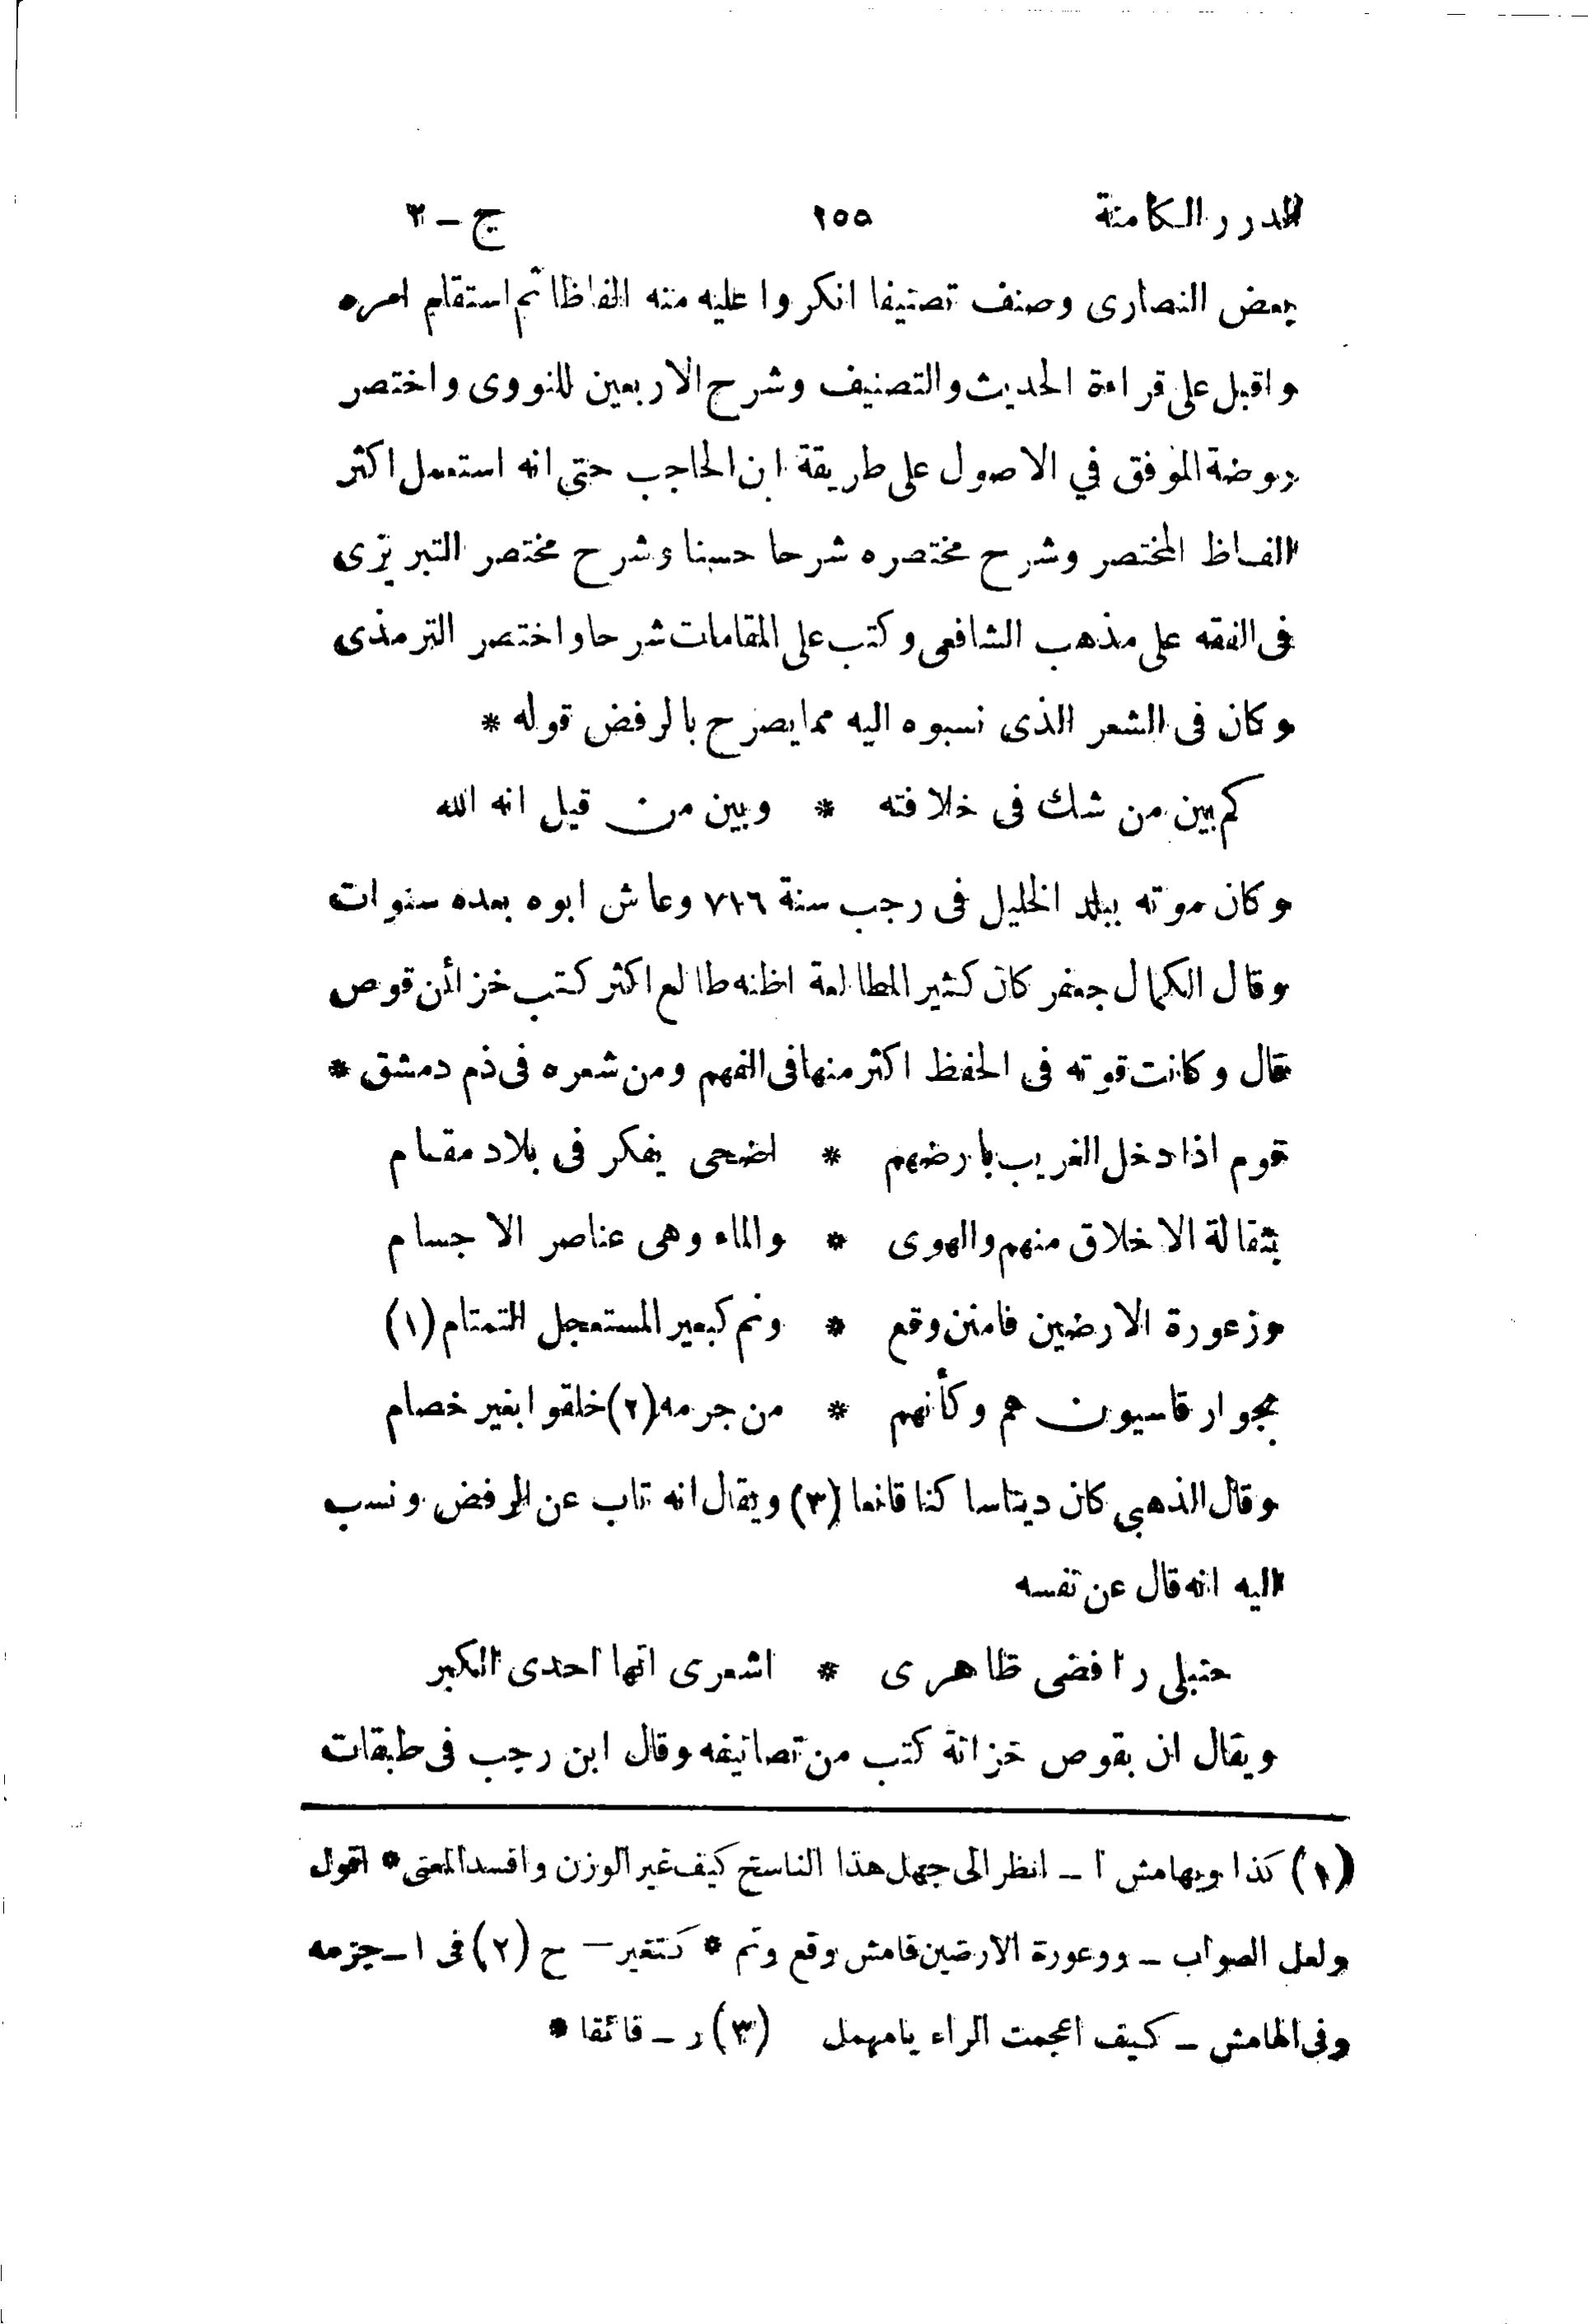 الدرر الكامنة ١٥٥ ج – ٢
بعض النصارى وصنف تصنيفا انكروا عليه منه الفاظا ثم استقام امره
واقبل على قراءة الحديث والتصنيف وشرح الاربعين للنووى واختصر
روضة الموفق في الاصول على طريقة ابن الحاجب حتى انه استعمل اكثر
الفاظ المختصر وشرح مختصره شرحا حسنا وشرح مختصر التبريزى
فى الفقه على مذهب الشافعى وكتب على المقامات شرحا واختصر الترمذى
وكان فى الشعر الذى نسبوه اليه مما يصرح بالرفض قوله *
كم بين من شك فى خلافته * وبين من قيل انه الله
وكان موته ببلد الخليل فى رجب سنة ٧١٦ وعاش ابوه بعده سنوات
وقال الكمال جعفر كان كثير المطالعة اظنه طالع اكثر كتب خزائن قوص
قال وكانت قوته فى الحفظ اكثر منها فى الفهم ومن شعره فى ذم دمشق *
قوم اذا دخل الغريب بارضهم * اضحى يفكر فى بلاد مقام
بثقالة الاخلاق منهم والهوى * والماء وهى عناصر الاجسام
وزعورة الارضين فامنن وقع * ونم كبعير المستعجل التمتام (١)
بجوار قاسيون هم وكأنهم * من جرمه (٢) خلقوا بغير خصام
وقال الذهبى كان دينا ساكنا قانعا (٣) ويقال انه تاب عن الرفض ونسب
اليه انه قال عن نفسه
حنبلى رافضى ظاهرى * اشعرى انها احدى الكبر
ويقال ان بقوص خزانة كتب من تصانيفه وقال ابن رجب فى طبقات
(١) كذا وبهامش ا – انظر الى جهل هذا الناسخ كيف غير الوزن وافسد المعنى * اقول
ولعل الصواب – ووعورة الارضين فامش وقع وتم * كتغير – ح (٢) فى ا – جزمه
وفى الهامش – كيف اعجمت الراء يا مهمل (٣) ر – قائقا *